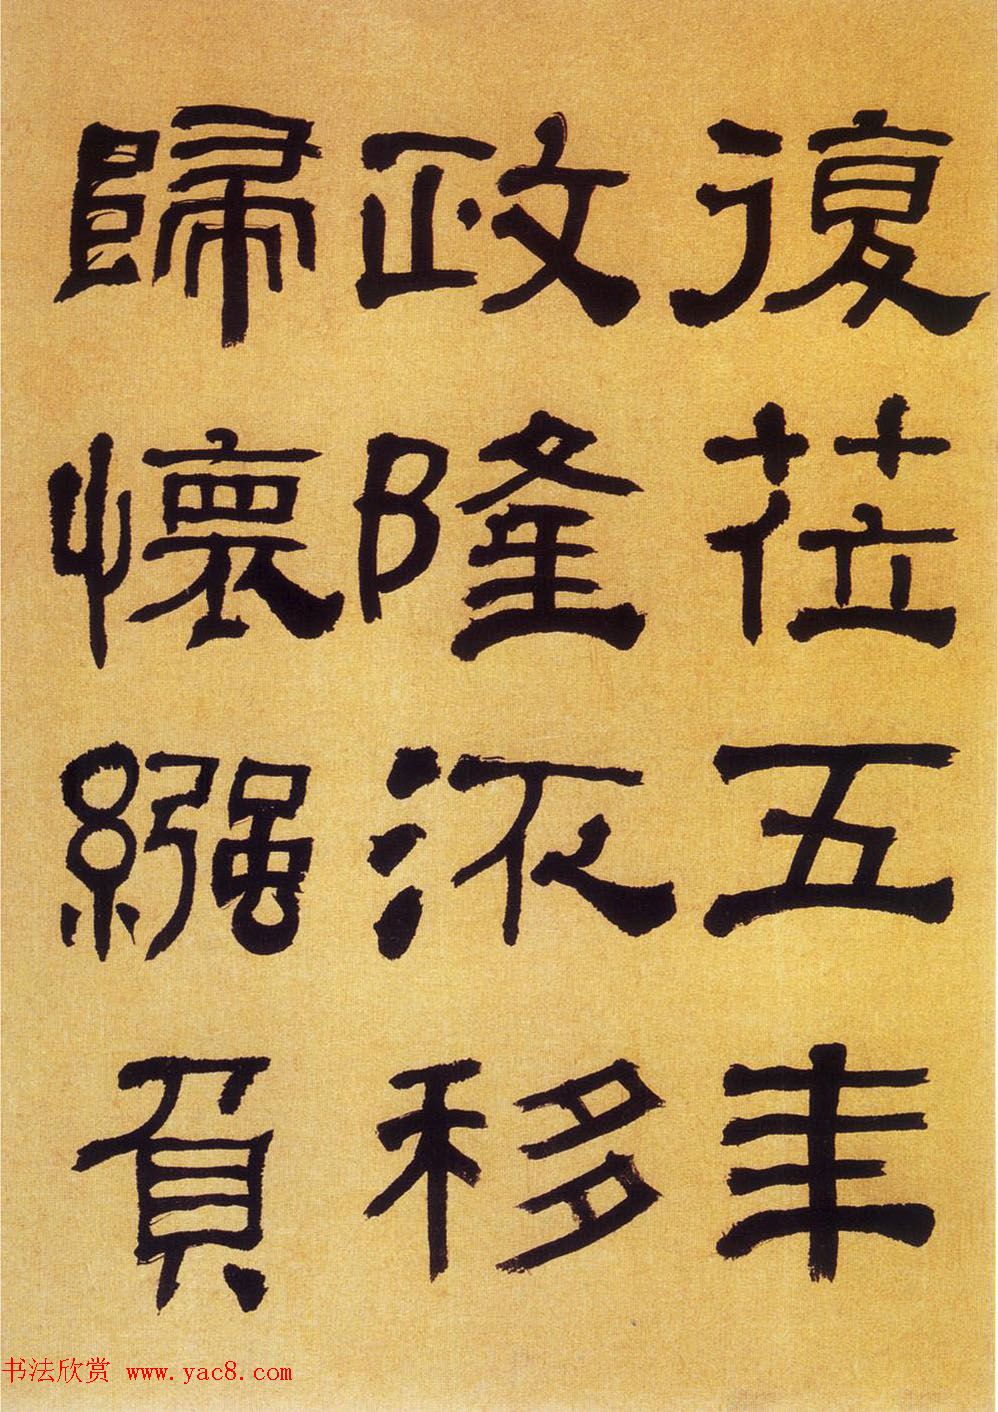 復莅五年
政隆汦移
歸懷繈負
书法欣赏 www.yac8.com